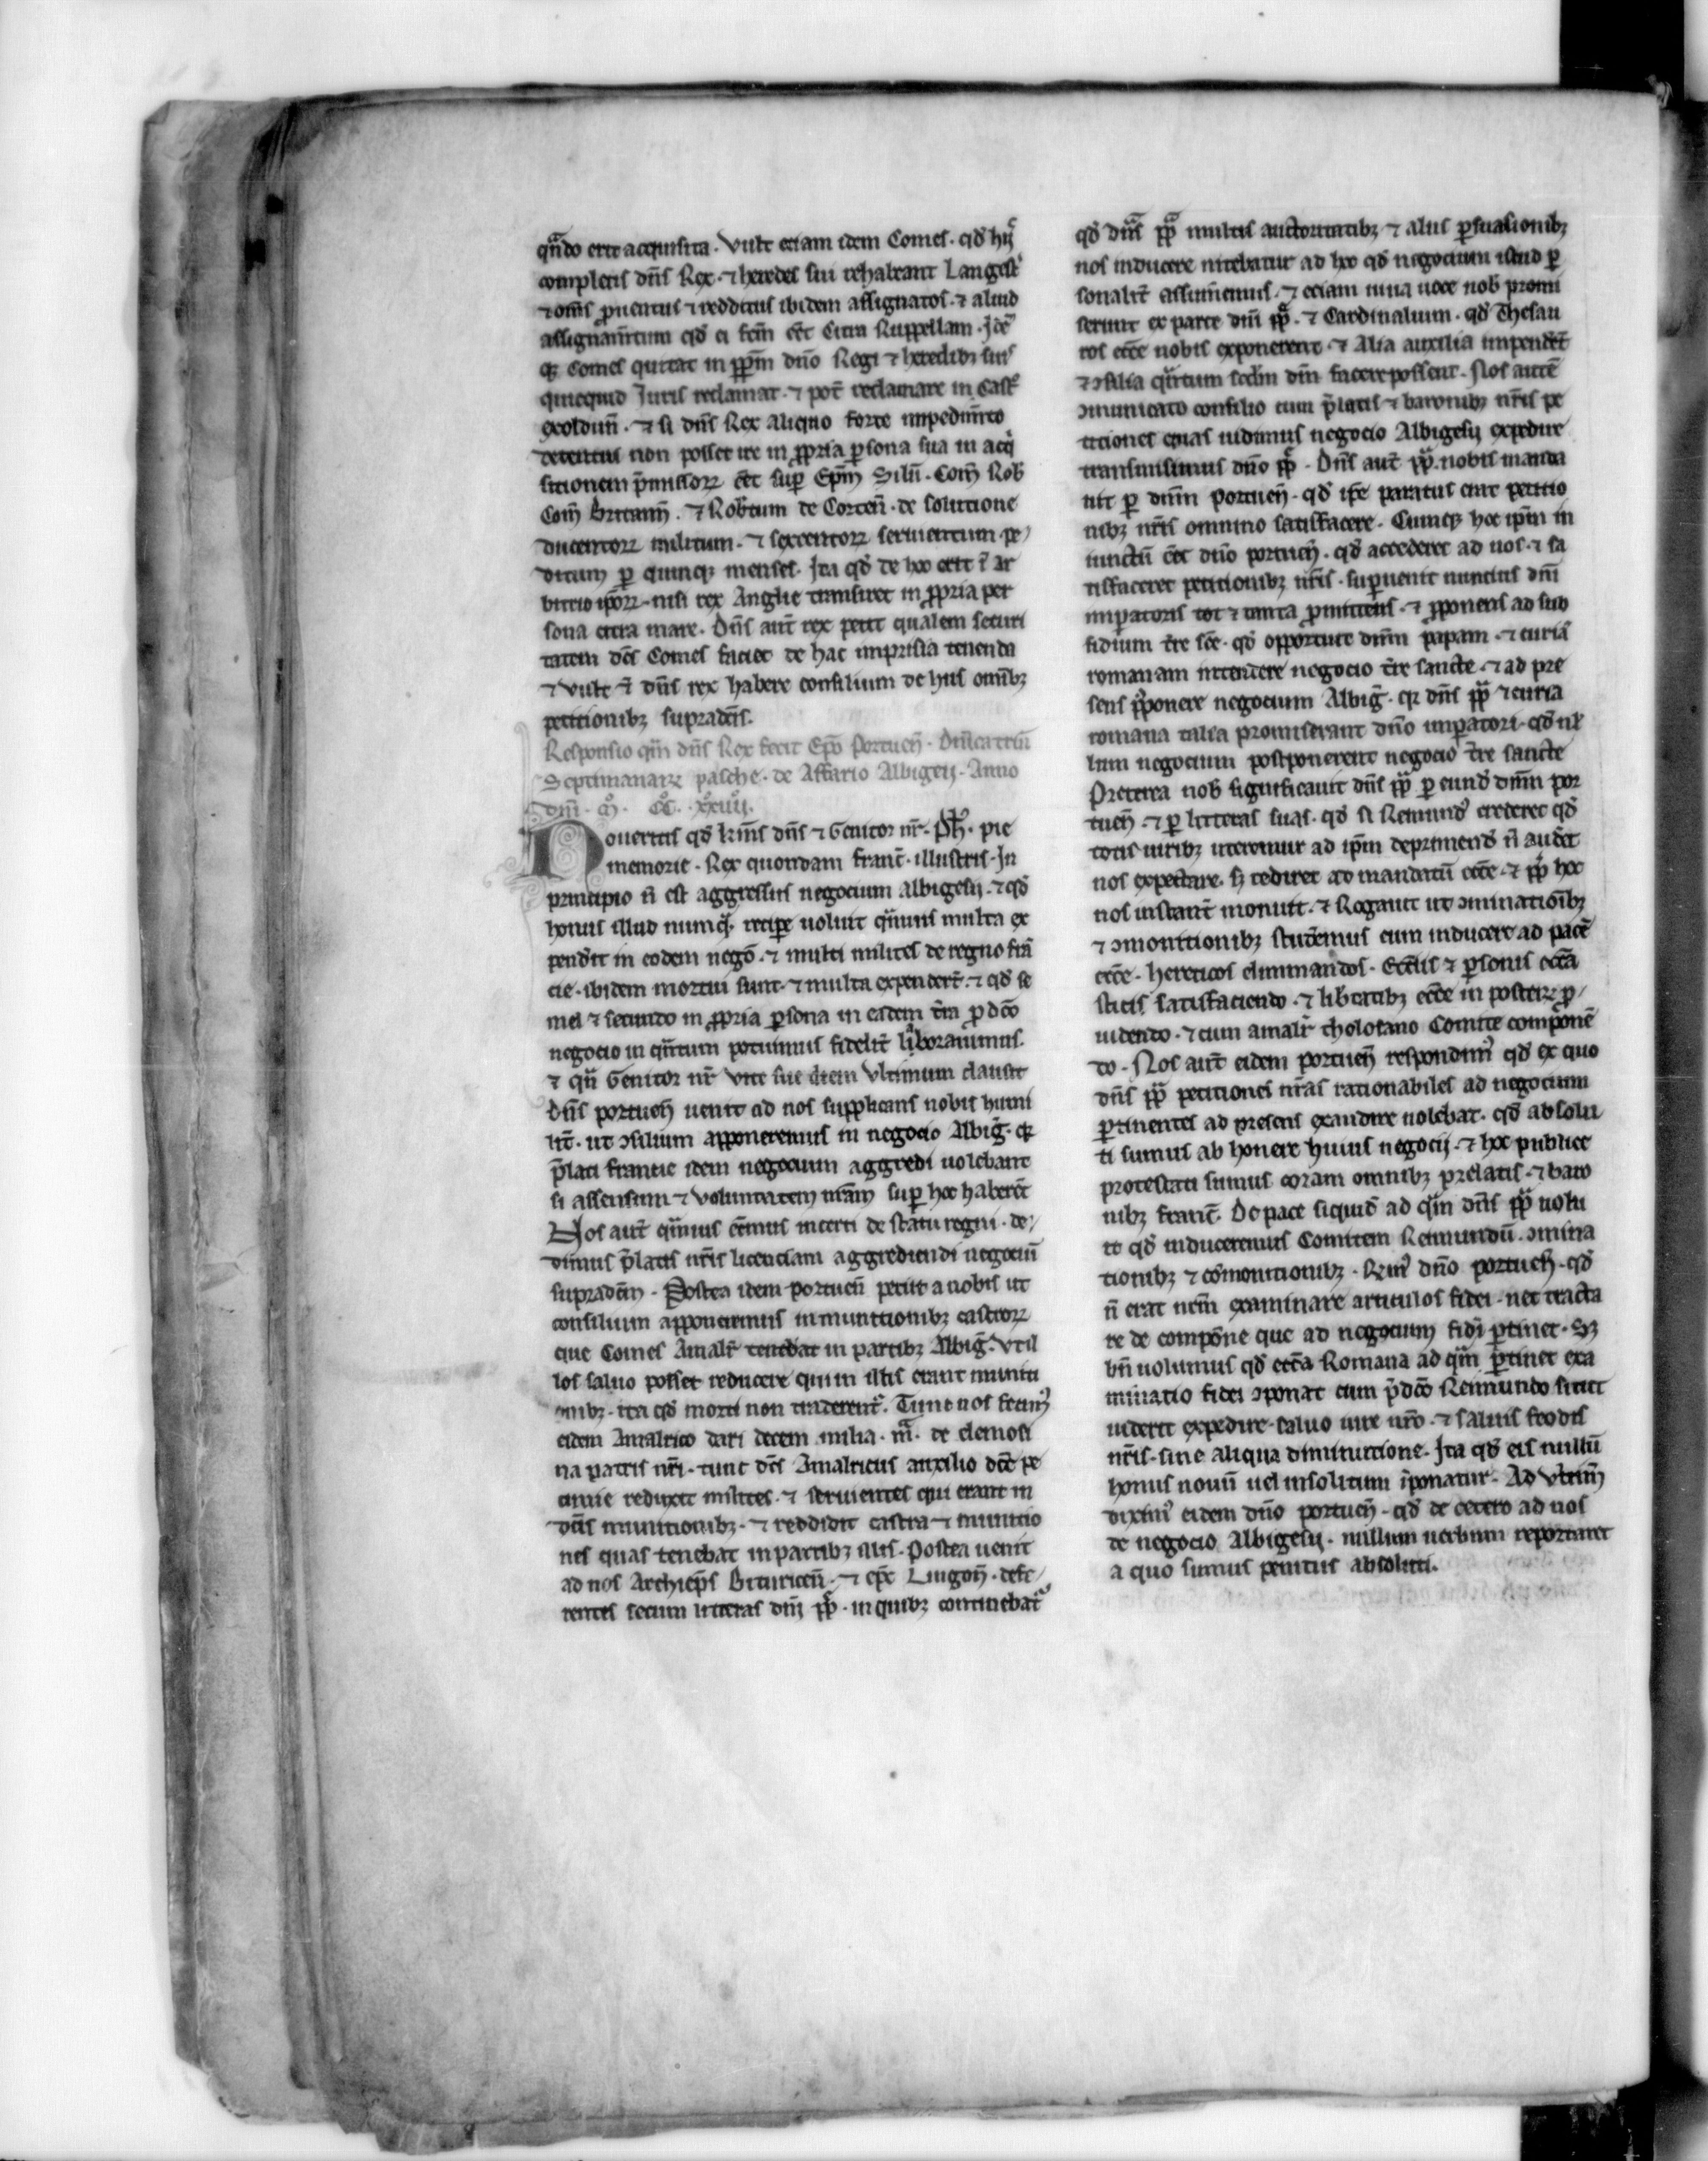 qn̄do erit acquisita. Vult etiam idem Comes. qđ hij̄
completis dn̄s Rex. ⁊ heredes sui rehabeant Langest̄
⁊ om̄s ꝓuentus ⁊ redditus ibidem assignatos. ⁊ aliud
assignam̄tum qđ ei fcm̄ eēt Citra Ruppellam. Idē
qꝫ Comes quitat in ꝑpm̄ dn̄o Regi ⁊ heredibꝫ suis
quicquid Juris reclamat. ⁊ pot̄ reclamare in Cast̄
exoldun̄. ⁊ si dn̄s Rex aliquo forte impedim̄to
detentus non posset ire in ꝓpria ꝑsona sua in acq̄
sitionem p̄missoꝝ eēt suꝑ Ep̄m Silū. Com̄ Rob̄
Com̄ Britann̄. ⁊ Rob̄tum de Corten̄. de solutione
ducentoꝝ militum. ⁊ sexcentoꝝ seruientum pe
ditum ꝑ quinqꝫ menses. Ita qđ de hoc erit ī ar
bitrio ip̄oꝝ. nisi rex Anglie transiret in ꝓpria per
sona citra mare. Dn̄s aut̄ rex petit qualem securi
tatem dc̄s Comes faciet de hac imprisia tenenda
⁊ vult ē dn̄s rex habere consilium de hiis om̄ibꝫ
petitionibꝫ supradc̄is.
Responsio qm̄ dn̄s Rex fecit Ep̄o Portuen̄. Dn̄ica triū
Septimanaꝝ pasche. de Affario Albigeij. Anno
dn̄i. m̊. CC̊. xx̊iiij̊.
Noueritis qđ km̄s dn̄s ⁊ Genitor nr̄. Ph̄. pie
memorie. Rex quondam franc̄. illustris. In
principio n̄ est aggressus negocium albigesij. ⁊ qđ
honus illud numq̄. reciꝑe uoluit qm̄uis multa ex
pend̄it in eodem nego. ⁊ multi milites de regno frā
cie. ibidem mortui sunt. ⁊ multa expender̄t. ⁊ qđ se
mel ⁊ secundo in ꝓpria ꝑsona in eadem tr̄a ꝑ dc̄o
negocio in qn̄tum potuimus fidelit̄ laborauimus.
⁊ qn̄ Genitor nr̄ vite sue diem vltimum clausit
dn̄s portuen̄ uenit ad nos supplicans nobis humi
lit̄. ut ↄsilium apponeremus in negocio Albiḡ. qꝫ
p̄lati francie idem negocium aggredi uolebant
si assensum ⁊ voluntatem nr̄am suꝑ hoc haberēt
Nos aut̄ qm̄uis eēmus incerti de statu regni. de
dimus p̄latis nr̄is licenciam aggrediendi negociū
supradcm̄. Postea idem portuen̄ petiit a nobis ut
consilium apponeremus in munitionibꝫ castroꝝ
que Comes Amalr̄ tenebat in partibꝫ Albiḡ. Vt il
los saluo posset reducere qui in illis erant muniti
onibꝫ. ita qđ morti non traderent̄. Tunc nos fecimꝰ
eidem Amalrico dari decem milia. m̄. de elemosi
na patris nr̄i. tunc dc̄s Amalricus auxilio dc̄e pe
cunie reduxit milites. ⁊ seruientes qui erant in
dc̄is munitionibꝫ. ⁊ reddidit castra ⁊ munitio
nes quas tenebat in partibꝫ illis. Postea uenit
ad nos Archiep̄s Bituricen̄. ⁊ ep̄c Lingon̄. defe
rentes secum litteras dn̄i pp̄. in quibꝫ continebat̄
qđ dn̄s pp̄ multis auctoritatibꝫ ⁊ aliis ꝑsuasionibꝫ
nos inducere nitebatur ad hoc qđ negocium istud ꝑ
sonalit̄ assumemus. ⁊ eciam uiua uoce nob̄ promi
serunt ex parte dn̄i pp̄. ⁊ Cardinalium. qđ Thesau
ros ecc̄e nobis exponerent. ⁊ Alia auxilia impenderēt
⁊ ↄsilia qn̄tum scd̄m dm̄ facere possent. Nos autē
ↄmunicato consilio cum p̄latis ⁊ baronibꝫ nr̄is pe
titiones quas uidimus negocio Albigesij expedire
transmisimus dn̄o pp̄. Dn̄s aut̄ pp̄. nobis manda
uit ꝑ dnm̄ portuen̄. qđ ip̄e paratus erat petitio
nibꝫ nr̄is omnino satisfacere. Cumqꝫ hoc ip̄m in
iunctū eēt dn̄o portuen̄. qđ accederet ad nos. ⁊ sa
tisfaceret petitionibꝫ nr̄is. suꝑuenit nuncius dn̄i
imꝑatoris tot ⁊ tanta ꝓmittens. ⁊ ꝓponens ad sub
sidium tr̄e sc̄e. qđ opportuit dnm̄ papam. ⁊ curiā
romanam intendere negocio tr̄e sancte. ⁊ ad pre
sens p̄ponere negocium Albiḡ. qꝛ dn̄s pp̄ ⁊ curia
romana talia promiserant dn̄o imꝑatori. qđ nl̄
lum negocium postponerent negocio tr̄e sancte
Preterea nob̄ significauit dn̄s pp̄ ꝑ eund̄ dnm̄ por
tuen̄. ⁊ ꝑ litteras suas. qđ si Remundꝰ crederet qđ
totis uiribꝫ uteremur ad ip̄m deprimend̄ n̄ aud̄et
nos expectare. sꝫ rediret ad mandatū ecc̄e. ⁊ pp̄ hoc
nos instant̄ monuit. ⁊ Rogauit ut ↄminationibꝫ
⁊ ↄmonitionibꝫ studemus eum inducere ad pacē
ecc̄e. hereticos eliminandos. Ecc̄iis ⁊ ꝑsonis ecc̄ia
sticis satisfaciendo. ⁊ lib̄tatibꝫ ecc̄e in posteꝝ ꝓ
uidendo. ⁊ cum amalr̄ tholosano Comite componē
do. Nos aut̄ eidem portuen̄ respondimꝰ qđ ex quo
dn̄s pp̄ petitiones nr̄as rationabiles ad negocium
ꝑtinentes ad presens exaudire nolebat. qđ absolu
ti sumus ab honere huius negocij. ⁊ hoc publice
protestati sumus coram omnibꝫ prelatis. ⁊ baro
nibꝫ franc̄. De pace siquid̄ ad qm̄ dn̄s pp̄ uolu
it qđ induceremus Comitem Reimundū. ↄmina
tionibꝫ ⁊ cōmonitionibꝫ. Rn̄ꝰ dn̄o portuen̄. qđ
n̄ erat nr̄m examinare articulos fidei. nec tracta
re de compōne que ad negocium fidei ꝑtinet. Sꝫ
bn̄ uolumus qđ ecc̄a Romana ad qm̄ ꝑtinet exa
minatio fidei ↄponat cum p̄dc̄o Reimundo sicut
uiderit expedire. saluo iure nr̄o. ⁊ saluis feodis
nr̄is. sine aliqua diminutione. Ita qđ eis nullū
honus nouū uel insolitum īponatur. Ad vltim̄
diximꝰ eidem dn̄o portuen̄. qđ de cetero ad nos
de negocio Albigesij. nullum uerbum reportaret
a quo sumus penitus absoluti.